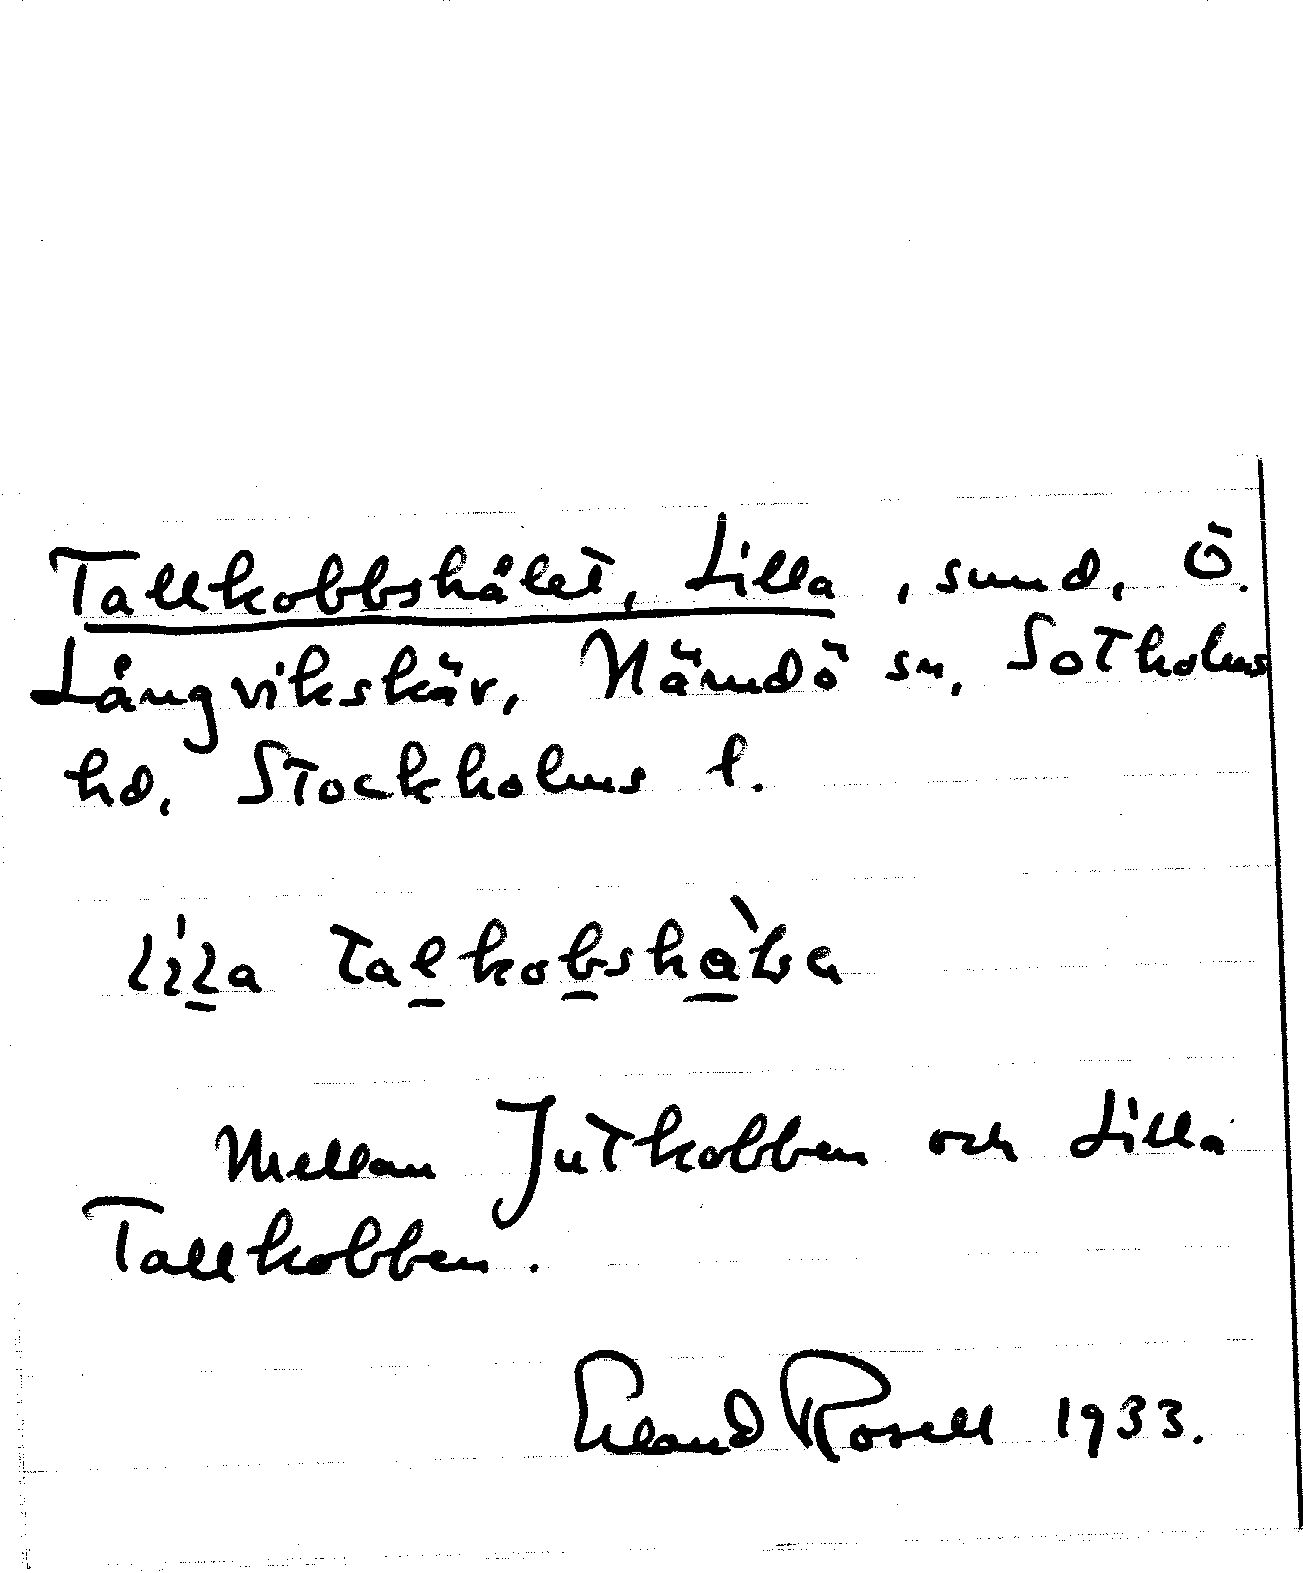 Tallkobbshålet, Lilla, sund, Ö.
Långvikskär, Nämdö sn, Sotholms
hd, Stockholms l.
Mellan Jutkobben och Lilla
Tallkobben.
Erland Rosell 1933.